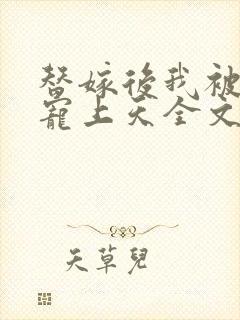 替嫁後我被
寵上天全文
天草兒